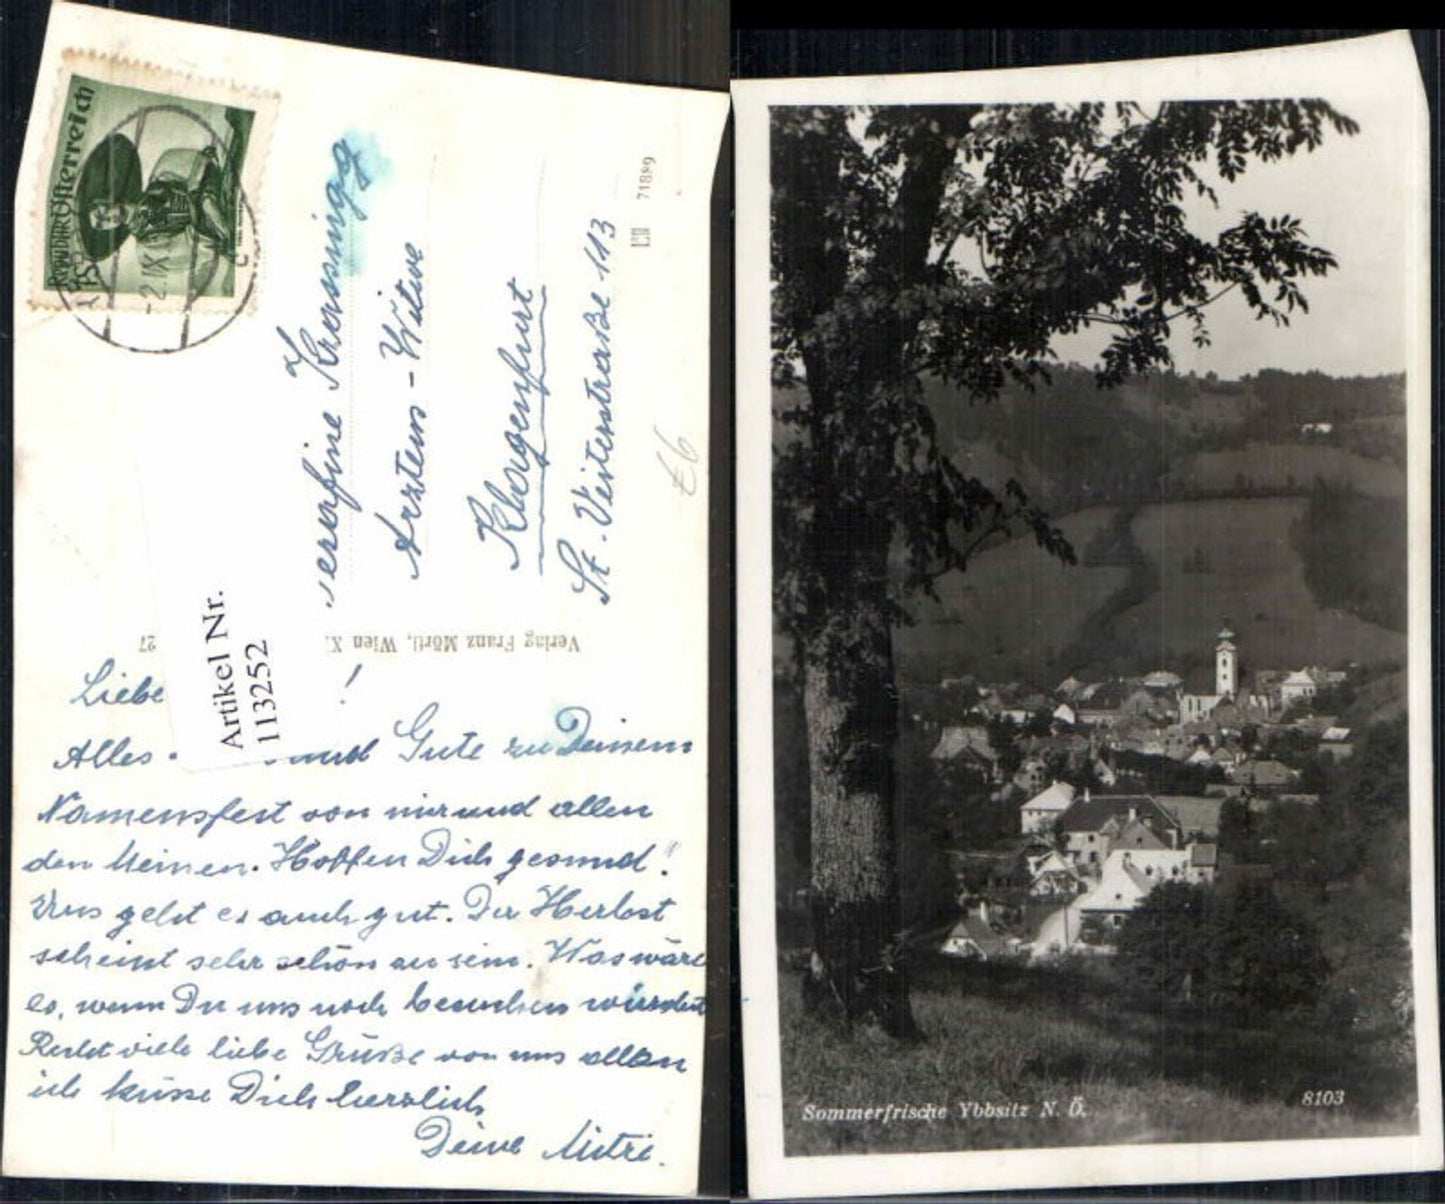 Republik Österreich
-2.IX
Serafine Krassnigg
Arztens-Witwe
Klagenfurt
St. Veiterstraße 113
71889
€6
Verlag Franz Mörtl, Wien X.
27
Artikel Nr.
113252
Liebe !
Alles und Gute zu Deinem
Namensfest von mir und allen
den Meinen. Hoffen Dich gesund!
Uns geht es auch gut. Der Herbst
scheint sehr schön zu sein. Was wäre
es, wenn Du uns noch besuchen würdest
Recht viele liebe Grüße von uns allen
ich küsse Dich herzlich
Deine Mitzi.
Sommerfrische Ybbsitz N. Ö.
8103